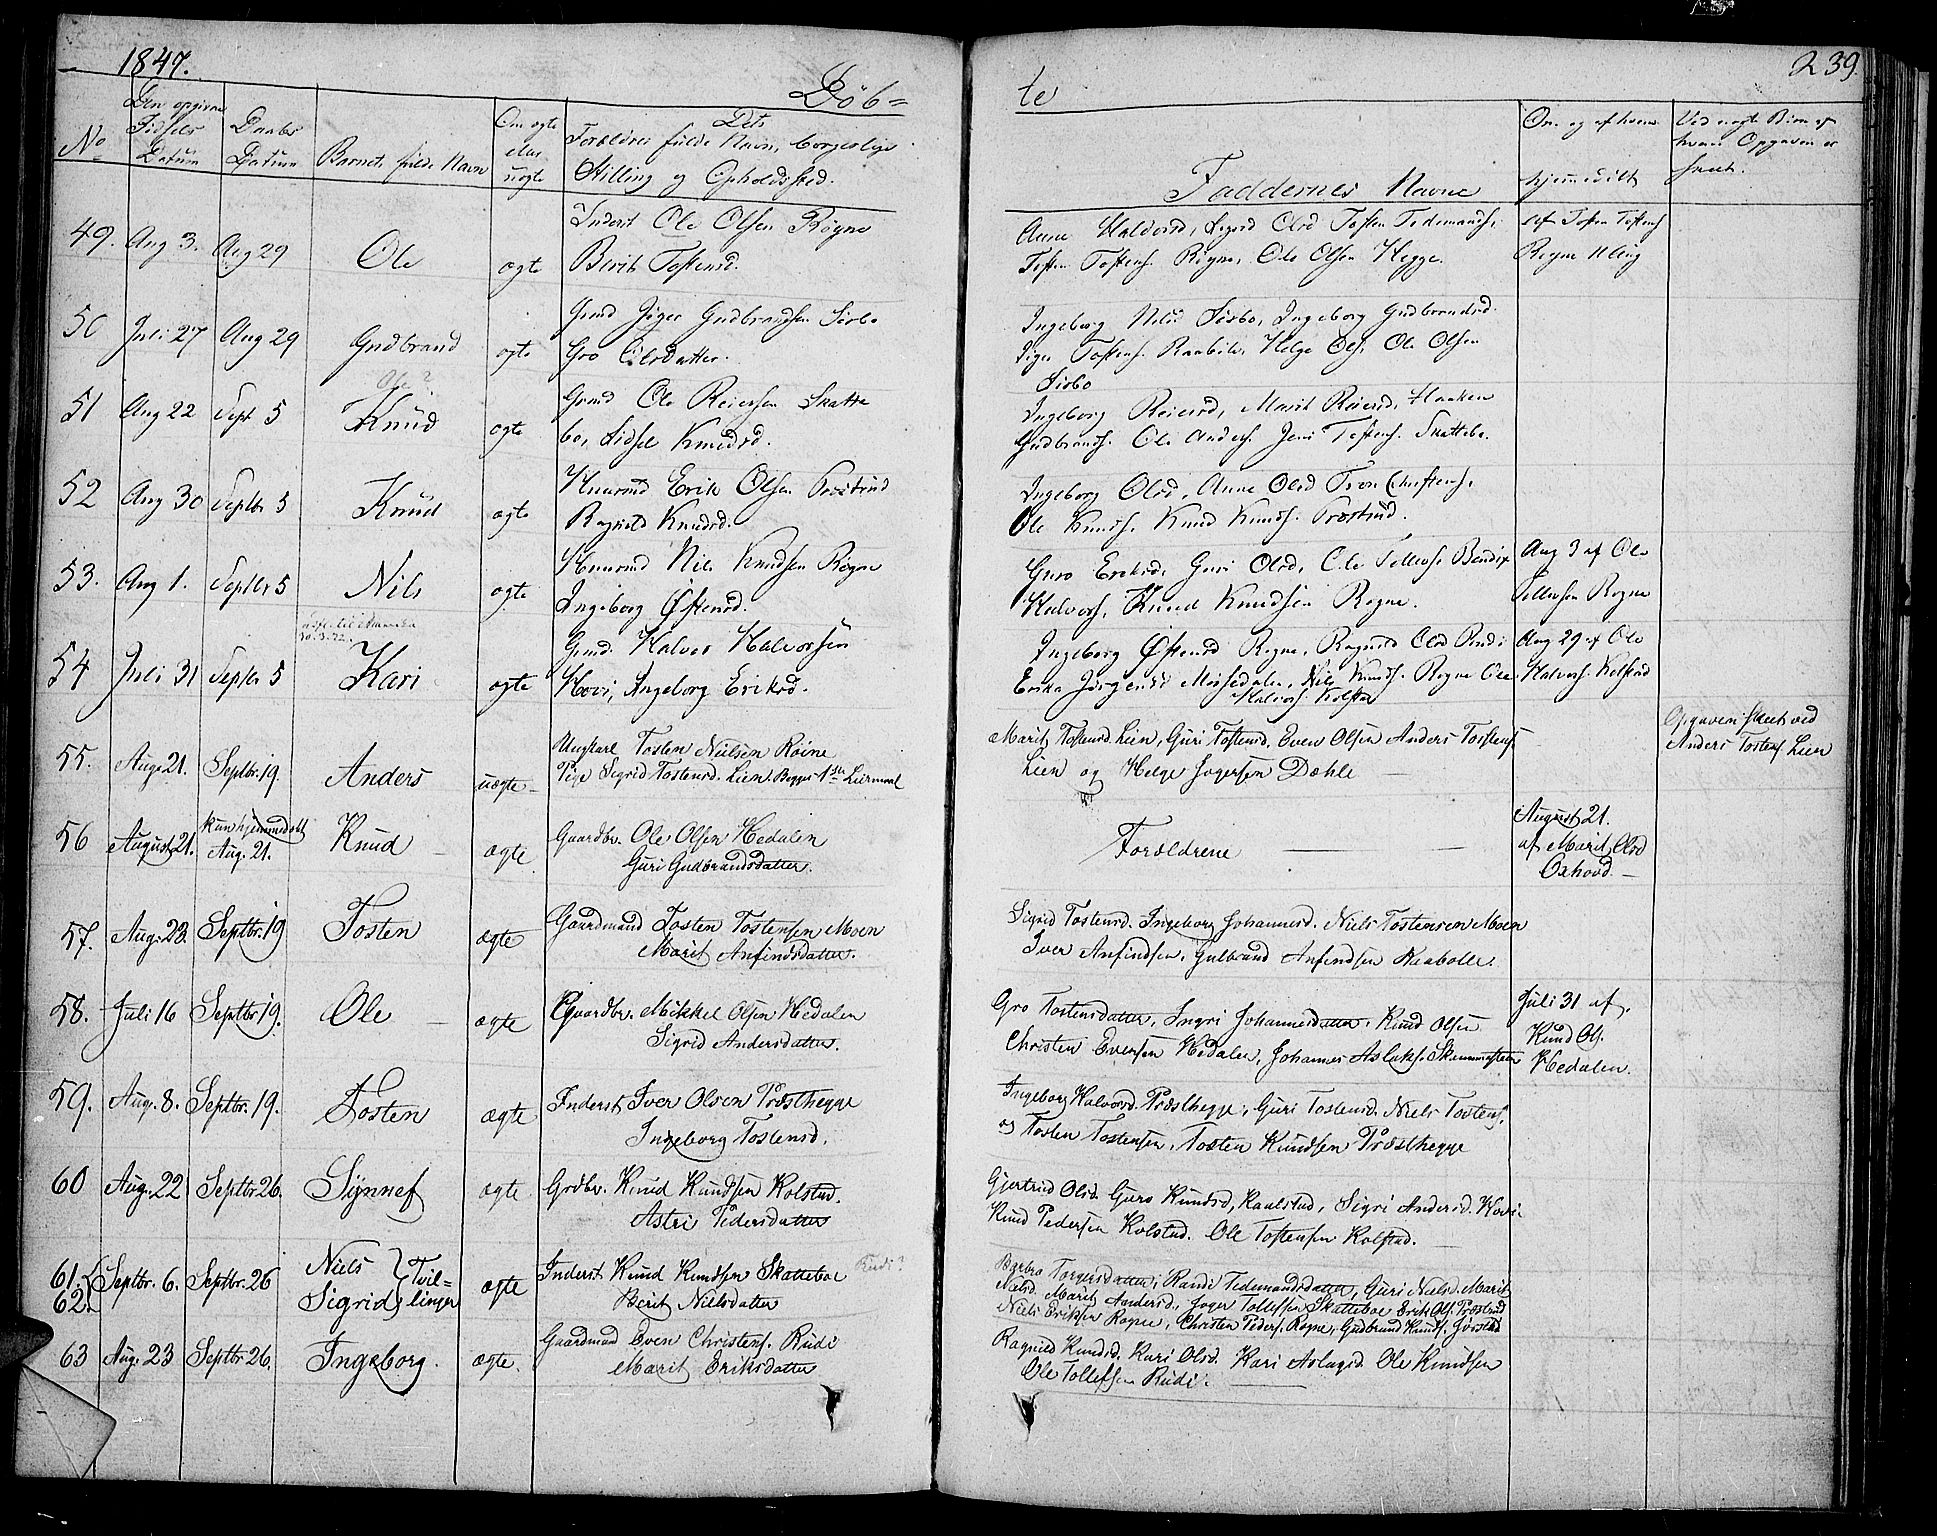 1847.
Döb=
te
239.
No
Den opgivne Födsels Datum
Daabs Datum
Barnets fulde Navn
Om ægte eller uægte
Det
Forældres fulde Navn, borgerlige
Stilling og Opholdssted.
Faddernes Navne
Om og af hvem
hjemmedöbt
Ved uægte Börn af
hvem Opgaven er
skeet.
49. Aug 3. Aug 29 Ole ægte Inderst Ole Olsen Rögne
Berit Tostensd.
Anne Halvorsd, Sigrid Olsd Tosten Tidemands.
Tosten Tostens. Rögne, Ole Olsen Hegge.
af Tosten Tostens
Rogne
50 Juli 27 Aug 29 Gudbrand ægte Grmd Jöger Gudbrandsen Sörbo
Gro Olsdatter.
Ingeborg Nilsd Sörbo, Ingeborg Gudbrandsd.
Jöger Tostens. Raaböle, Helge Ols. Ole Olsen
Sörbo
51 Aug 22 Sept 5 Knud ægte Grmd Ole Reiersen Skatte
bo, Sidsel Knudsd.
Ingeborg Reiersd, Marit Reiersd, Haaken
Gudbrands. Ole Anders. Jens Tostens. Skattebo.
52 Aug 30 Septbr 5 Knud ægte Huusmd Erik Olsen Pröstrud
Ragnild Knudsd.
Ingeborg Olsd, Anne Olsd Tron Christens.
Ole Knuds. Knud Knuds. Pröstrud.
53. Aug 1. Septbr 5 Nils ægte Huusmd Nils Knudsen Rögne
Ingeborg Östensd.
Guro Eriksd, Guri Olsd, Ole Tollevs. Bendix
Halvors. Knud Knudsen Rogne.
Aug 3 af Ole
Tollevsen Rogne
30.3.72.
54 Juli 31 Septbr 5 Kari ægte Grmd. Halvor Halvorsen
Hovi, Ingeborg Eriksd.
Ingeborg Östensd Rogne, Ragnild Olsd
Erika Jörgensd Moisedalen, Nils Knuds. Rogne Ole
Halvors. Kolstad
Aug 29 af Ole
Halvors. Kolstad
55. Aug. 21. Septbr. 19. Anders uægte Ungkarl Tosten Nielsen Röine
Pige Sigrid Tostensd. Lien. Begges 1ste Leiermaal
Marit Tostensd Lien, Guri Tostensd. Even Olsen Anders Tostens
Lien og Helge Jogersen Dæhle
Opgaven skeet ved
Anders Tostens Lien
56 August 21. kun hjemmedöbt
Aug. 21. Knud ægte Gaardbr. Ole Olsen Hedalen
Guri Gudbrandsdatter.
Forældrene
August 21.
af Marit Olsd
Oxhovd.
57. Aug. 23. Septbr. 19 Tosten ægte Gaardmand Tosten Tostensen Moen
Marit Anfindsdatter.
Sigrid Tostensd. Ingeborg Johannesd. Niels Tostensen Moen
Iver Anfindsen, Gulbrand Anfindsen Raabölle.
58. Juli 16 Septbr 19. Ole ægte Gaardbr. Mikkel Olsen Hedalen
Sigrid Andersdatter.
Gro Tostensdatter, Ingri Johannesdatter. Knud Olsen
Christen Evensen Hedalen, Johannes Aslaks.
Juli 31 af
Knud Ols.
Hedalen.
59. Aug. 8. Septbr. 19. Tosten ægte Inderst Iver Olsen Præsthegge
Ingeborg Tostensd.
Ingeborg Halvorsd. Præsthegge, Guri Tostensd. Niels Tostens.
og Tosten Tostensen, Tosten Knudsen Præsthegge
60 Aug. 22 Septbr 26. Synnef ægte Grdbr. Knud Knudsen Kolstad.
Astri Pedersdatter
Gjertrud Olsd. Guro Knudsd, Kaalstad, Sigri Andersd. Hovi
Knud Pedersen Kolstad. Ole Tostensen Kolstad.
61. 62. Septbr. 6. Septbr. 26 Niels Sigrid Tvil=
linger ægte Inderst Knud Knudsen Skatteboe Rudi?
Berit Nielsdatter
Barbra Torgersdatter, Randi Tidemandsdatter, Guri Nielsd. Marit
Nielsd. Marit Andersd., Joger Tollefsen Skatteboe Erik Ols. Pröstrud
Niels Eriksen Rogne, Christen Peders. Rogne, Gudbrand Knuds. Jörstad
63 Aug. 23 Septbr. 26. Ingeborg. ægte. Gaardmand Even Christens. Rudi
Marit Eriksdatter
Ragnild Knudsd. Kari Olsd. Kari Aslagsd. Ole Knudsen
Ole Tollefsen Rudi.